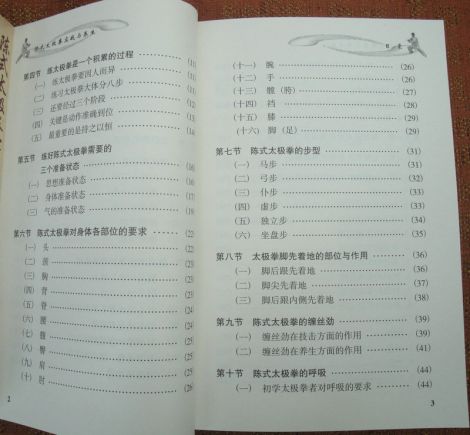 陈式太极拳实战与养生
第四节 练太极拳是一个积累的过程 (11)
(一) 练太极拳要因人而异 (11)
(二) 练习太极拳大体分八步
(三) 还要经过三个阶段
(四) 关键是动作准确到位
(五) 最重要的是持之以恒
第五节 练好陈式太极拳需要的
三个准备状态
(一) 思想准备状态
(二) 身体准备状态
(三) 气的准备状态
第六节 陈式太极拳对身体各部位的要求 (22)
(一) 头
(二) 颈
(三) 胸
(四) 背
(五) 脊
(六) 腰
(七) 腹
(八) 臀
(九) 肩
(十) 肘 (26)
2
目 录
(十一) 腕 (26)
(十二) 手 (26)
(十三) 髋(胯) (27)
(十四) 裆 (28)
(十五) 膝 (29)
(十六) 脚(足) (29)
第七节 陈式太极拳的步型 (31)
(一) 马步 (31)
(二) 弓步 (32)
(三) 仆步 (33)
(四) 虚步 (34)
(五) 独立步 (35)
(六) 坐盘步 (35)
第八节 太极拳脚先着地的部位与作用 (36)
(一) 脚后跟先着地 (36)
(二) 脚尖先着地 (37)
(三) 脚后跟内侧先着地 (38)
第九节 陈式太极拳的缠丝劲 (39)
(一) 缠丝劲在技击方面的作用 (39)
(二) 缠丝劲在养生方面的作用 (41)
第十节 陈式太极拳的呼吸 (44)
(一) 初学太极拳者对呼吸的要求 (44)
3